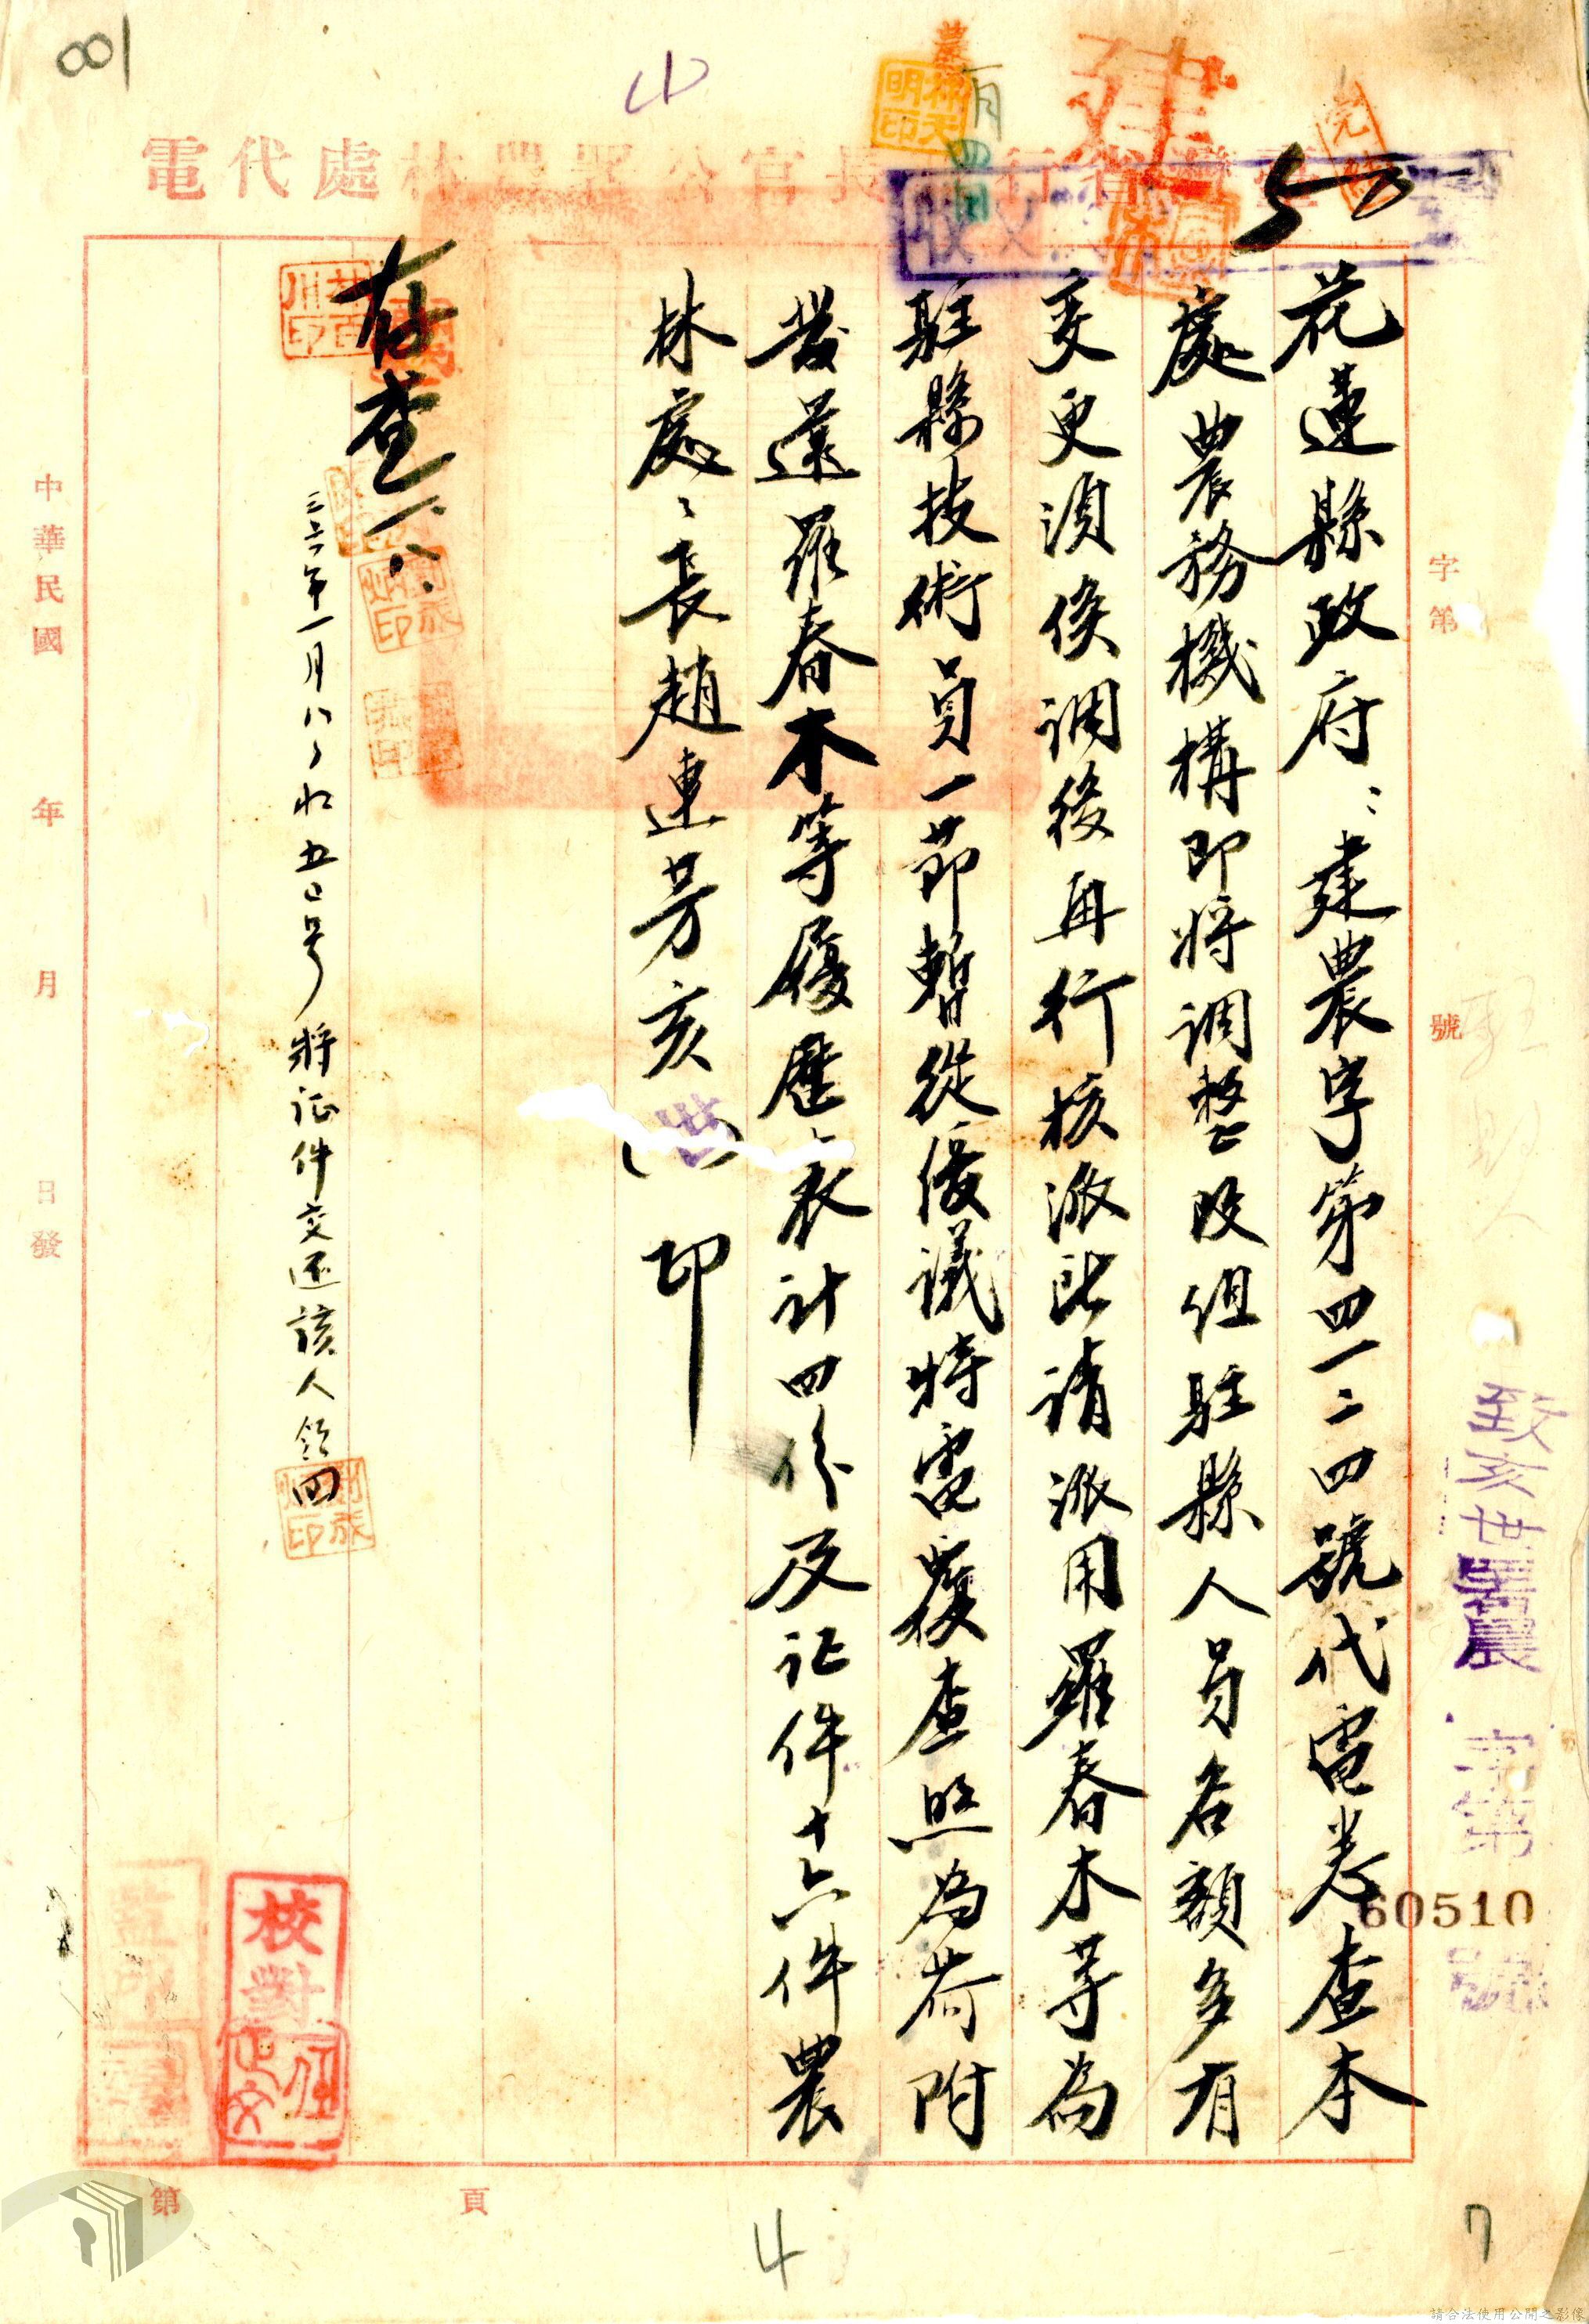 001
農林處代電
50
字第 號
致亥世署農 字第60510號
花蓮縣政府:建農字第四一二四號代電悉查本
處農務機構即將調整改組駐縣人員名額多有
变更須俟調後再行核派所請派用羅春木等為
駐縣技術員一節暫從緩議特電覆查照為荷附
發還羅春木等履歷表計四份及証件十六件農
林處處長趙連芳亥 印
存查 一、八
三六年一月八日收五〇号將証件交还該人領回
中華民國 年 月 日發
校對
第 頁
4
7
請合法使用公開之影像